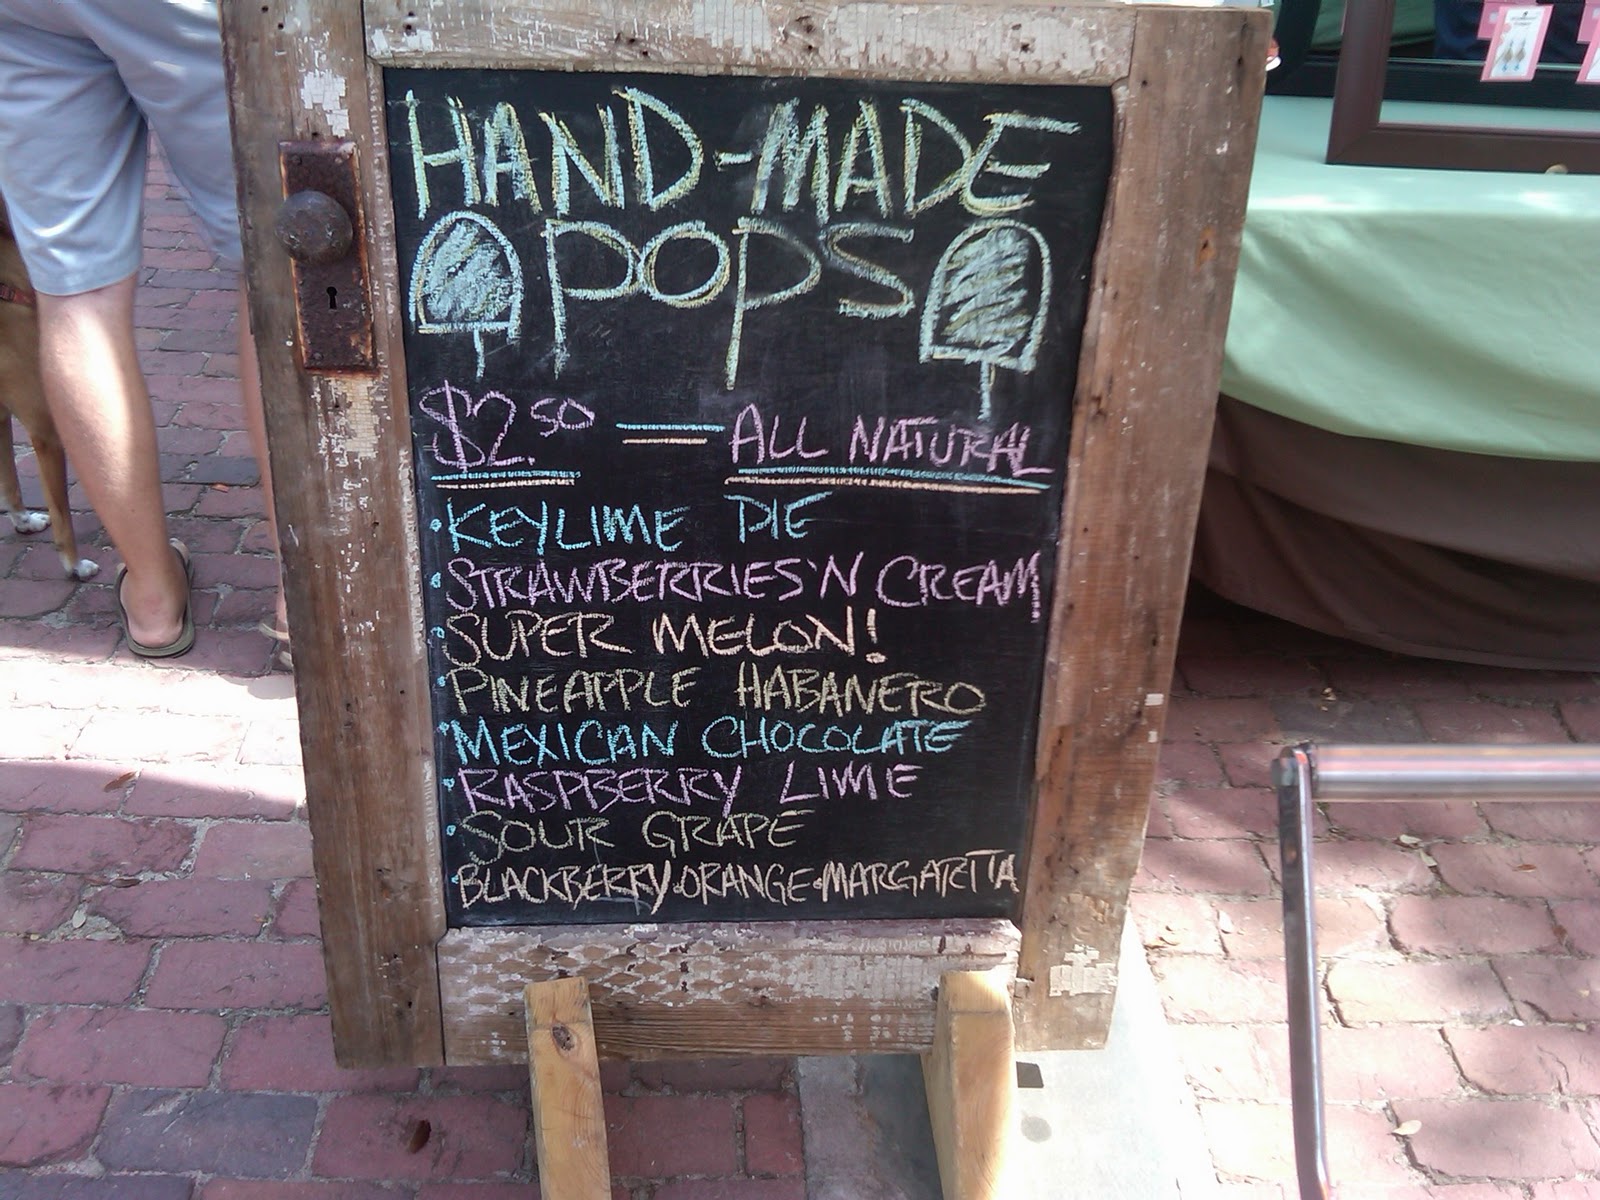 HAND-MADE
POPS
$2.50 = ALL NATURAL
• KEYLIME PIE
• STRAWBERRIES'N CREAM!
• SUPER MELON!
• PINEAPPLE HABANERO
• MEXICAN CHOCOLATE
• RASPBERRY LIME
• SOUR GRAPE
• BLACKBERRY•ORANGE•MARGARITA